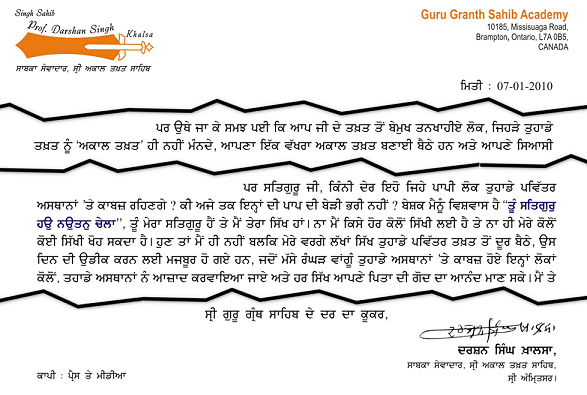 Singh Sahib
Prof. Darshan Singh
Khalsa
ਸਾਬਕਾ ਸੇਵਾਦਾਰ, ਸ੍ਰੀ ਅਕਾਲ ਤਖ਼ਤ ਸਾਹਿਬ
Guru Granth Sahib Academy
10185, Missisuaga Road,
Brampton, Ontario, L7A 0B5,
CANADA
ਮਿਤੀ : 07-01-2010
ਪਰ ਉਥੇ ਜਾ ਕੇ ਸਮਝ ਪਈ ਕਿ ਆਪ ਜੀ ਦੇ ਤਖ਼ਤ ਤੋਂ ਬੇਮੁਖ ਤਨਖਾਹੀਏ ਲੋਕ, ਜਿਹੜੇ ਤੁਹਾਡੇ
ਤਖ਼ਤ ਨੂੰ 'ਅਕਾਲ ਤਖ਼ਤ' ਹੀ ਨਹੀਂ ਮੰਨਦੇ, ਆਪਣਾ ਇੱਕ ਵੱਖਰਾ ਅਕਾਲ ਤਖ਼ਤ ਬਣਾਈ ਬੈਠੇ ਹਨ ਅਤੇ ਆਪਣੇ ਸਿਆਸੀ
ਪਰ ਸਤਿਗੁਰੂ ਜੀ, ਕਿੰਨੀ ਦੇਰ ਇਹੋ ਜਿਹੇ ਪਾਪੀ ਲੋਕ ਤੁਹਾਡੇ ਪਵਿੱਤਰ
ਅਸਥਾਨਾਂ 'ਤੇ ਕਾਬਜ਼ ਰਹਿਣਗੇ ? ਕੀ ਅਜੇ ਤਕ ਇਨ੍ਹਾਂ ਦੀ ਪਾਪ ਦੀ ਬੇੜੀ ਭਰੀ ਨਹੀਂ ? ਬੇਸ਼ਕ ਮੈਨੂੰ ਵਿਸ਼ਵਾਸ ਹੈ "ਤੂੰ ਸਤਿਗੁਰੁ
ਹਉ ਨਉਤਨੁ ਚੇਲਾ", ਤੂੰ ਮੇਰਾ ਸਤਿਗੁਰ ਹੈਂ ਤੇ ਮੈਂ ਤੇਰਾ ਸਿੱਖ ਹਾਂ। ਨਾ ਮੈਂ ਕਿਸੇ ਹੋਰ ਕੋਲੋਂ ਸਿੱਖੀ ਲਈ ਹੈ ਤੇ ਨਾ ਹੀ ਮੇਰੇ ਕੋਲੋਂ
ਕੋਈ ਸਿੱਖੀ ਖੋਹ ਸਕਦਾ ਹੈ। ਹੁਣ ਤਾਂ ਮੈਂ ਹੀ ਨਹੀਂ ਬਲਕਿ ਮੇਰੇ ਵਰਗੇ ਲੱਖਾਂ ਸਿੱਖ ਤੁਹਾਡੇ ਪਵਿੱਤਰ ਤਖ਼ਤ ਤੋਂ ਦੂਰ ਬੈਠੇ, ਉਸ
ਦਿਨ ਦੀ ਉਡੀਕ ਕਰਨ ਲਈ ਮਜਬੂਰ ਹੋ ਗਏ ਹਨ, ਜਦੋਂ ਮੱਸੇ ਰੰਘੜ ਵਾਂਗੂੰ ਤੁਹਾਡੇ ਅਸਥਾਨਾਂ 'ਤੇ ਕਾਬਜ਼ ਹੋਏ ਇਨ੍ਹਾਂ ਲੋਕਾਂ
ਕੋਲੋਂ, ਤੁਹਾਡੇ ਅਸਥਾਨਾਂ ਨੂੰ ਆਜ਼ਾਦ ਕਰਵਾਇਆ ਜਾਏ ਅਤੇ ਹਰ ਸਿੱਖ ਆਪਣੇ ਪਿਤਾ ਦੀ ਗੋਦ ਦਾ ਆਨੰਦ ਮਾਣ ਸਕੇ। ਮੈਂ ਤੇ
ਸ੍ਰੀ ਗੁਰੂ ਗ੍ਰੰਥ ਸਾਹਿਬ ਦੇ ਦਰ ਦਾ ਕੂਕਰ,
ਦਰਸ਼ਨ ਸਿੰਘ ਖ਼ਾਲਸਾ,
ਸਾਬਕਾ ਸੇਵਾਦਾਰ, ਸ੍ਰੀ ਅਕਾਲ ਤਖ਼ਤ ਸਾਹਿਬ,
ਸ੍ਰੀ ਅੰਮ੍ਰਿਤਸਰ।
ਕਾਪੀ : ਪ੍ਰੈਸ ਤੇ ਮੀਡੀਆ